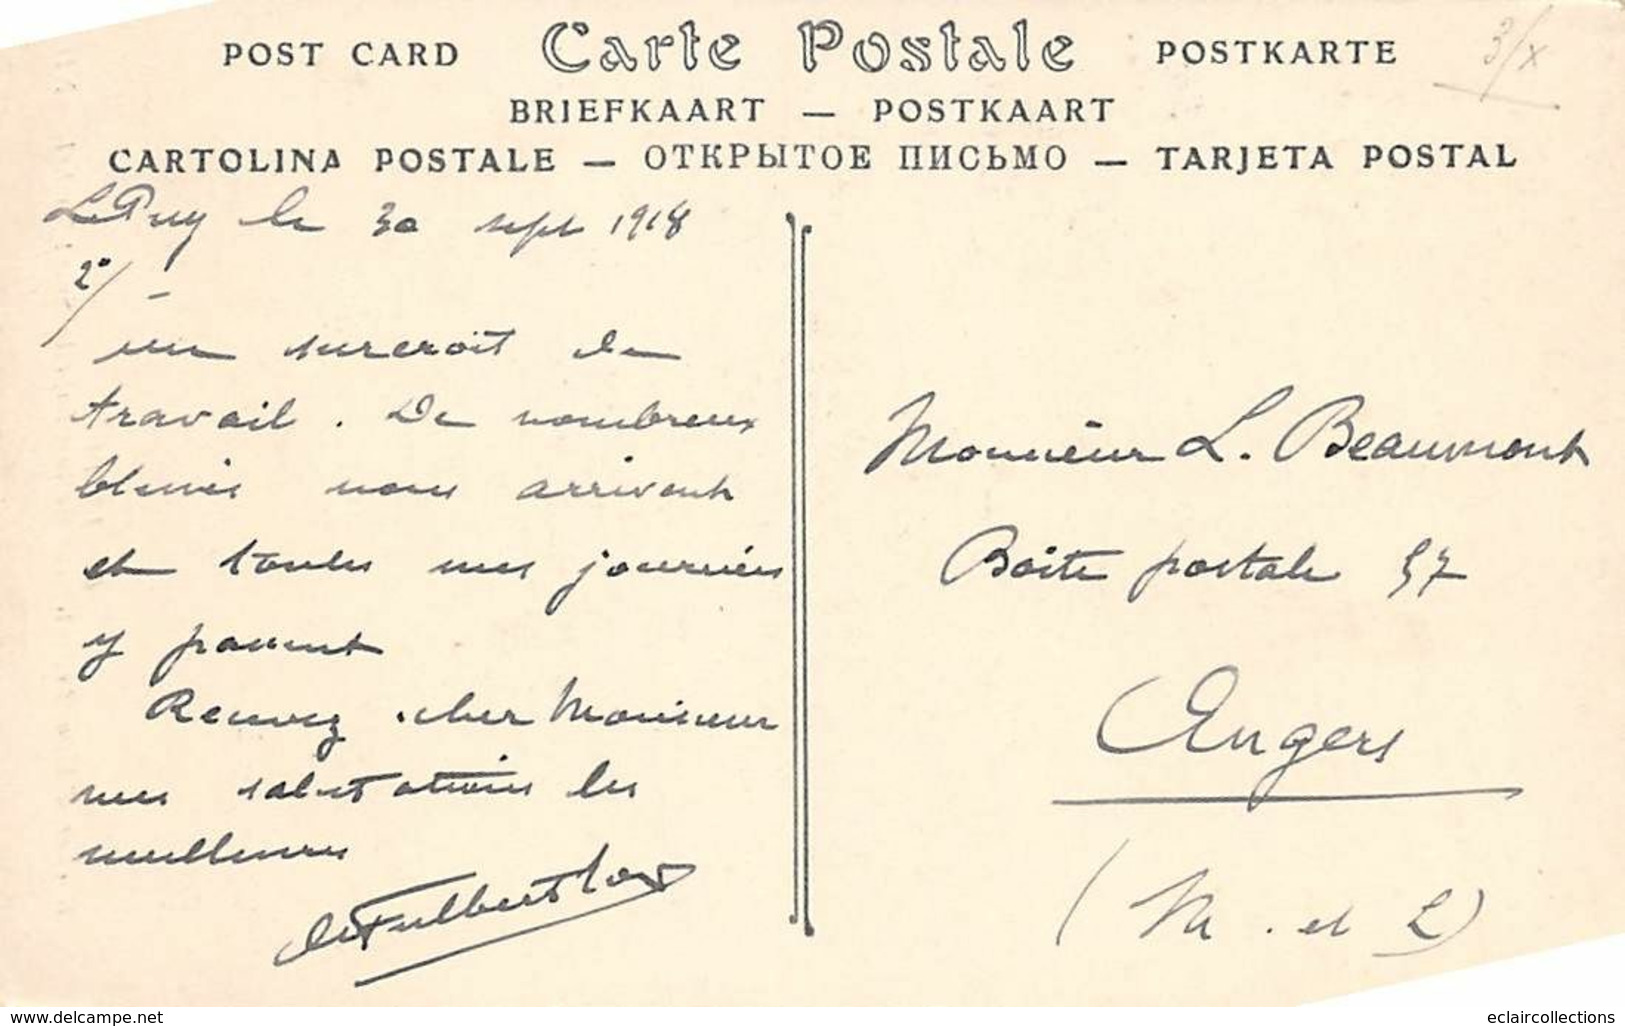 POST CARD Carte Postale POSTKARTE
3/x
BRIEFKAART — POSTKAART
CARTOLINA POSTALE — ОТКРЫТОЕ ПИСЬМО — TARJETA POSTAL
Le Puy le 30 sept 1918
2°/ –
un surcroit de
travail. De nombreux
blessés nous arrivent
et toutes mes journées
y passent
Recevez cher Monsieur
mes salutations les
meilleures
Fulbert
Monsieur L. Beaumont
Boite postale 57
Angers
(M. et L)
www.delcampe.net
eclaircollections